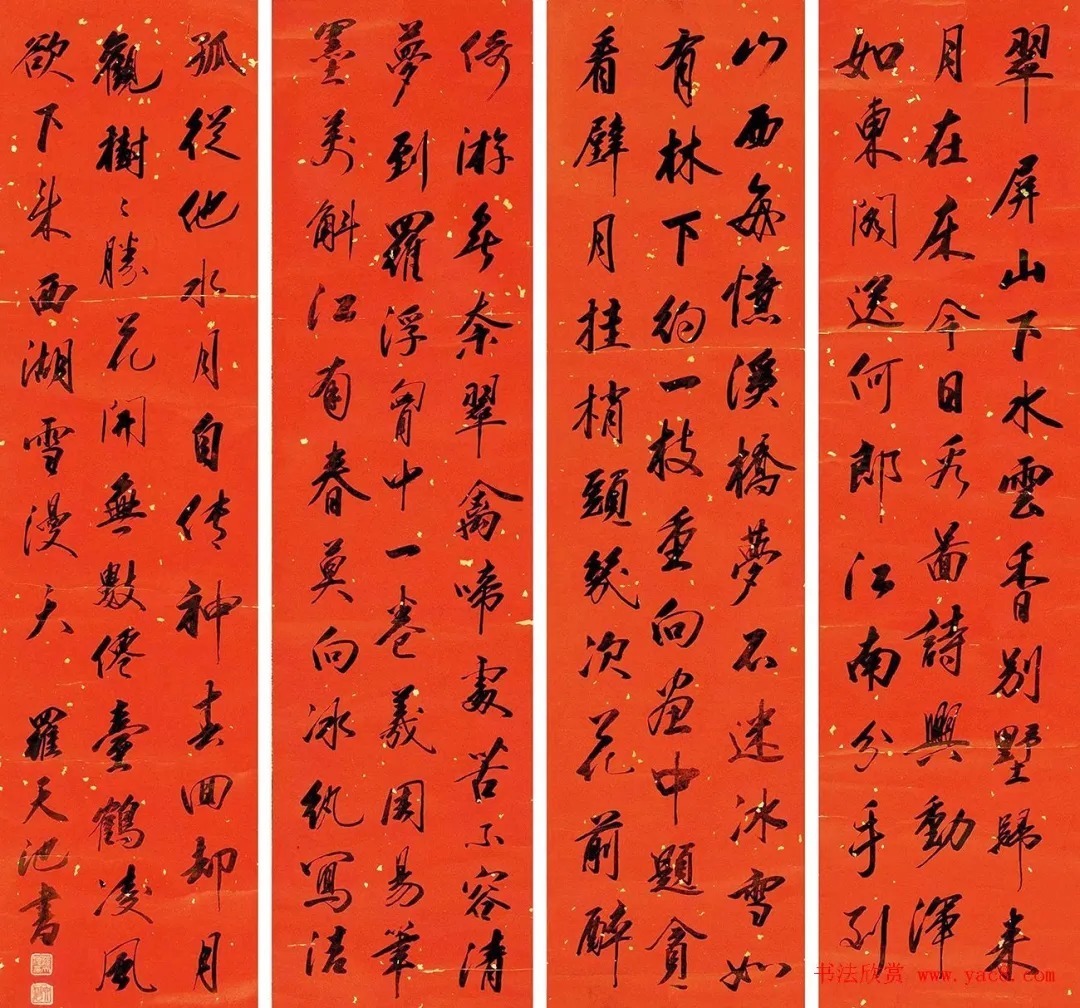 翠屏山下水雲香别墅歸来
月在床今日看啚詩興動渾
如東閣送何郎江南分手到
山西每憶溪橋夢不迷冰雪如
有林下約一枝重向畫中題貪
看壁月挂梢頭幾次花前醉
倚游無奈翠禽啼處苦不容清
夢到羅浮胷中一卷羲周易筆
墨萬斛江南春莫向冰紈寫潔
孤從他水月自傳神春回却月
觀樹〻勝花開無數僊臺鶴凌風
欲下来西湖雪漫天 羅天池書
书法欣赏 www.yac8.com